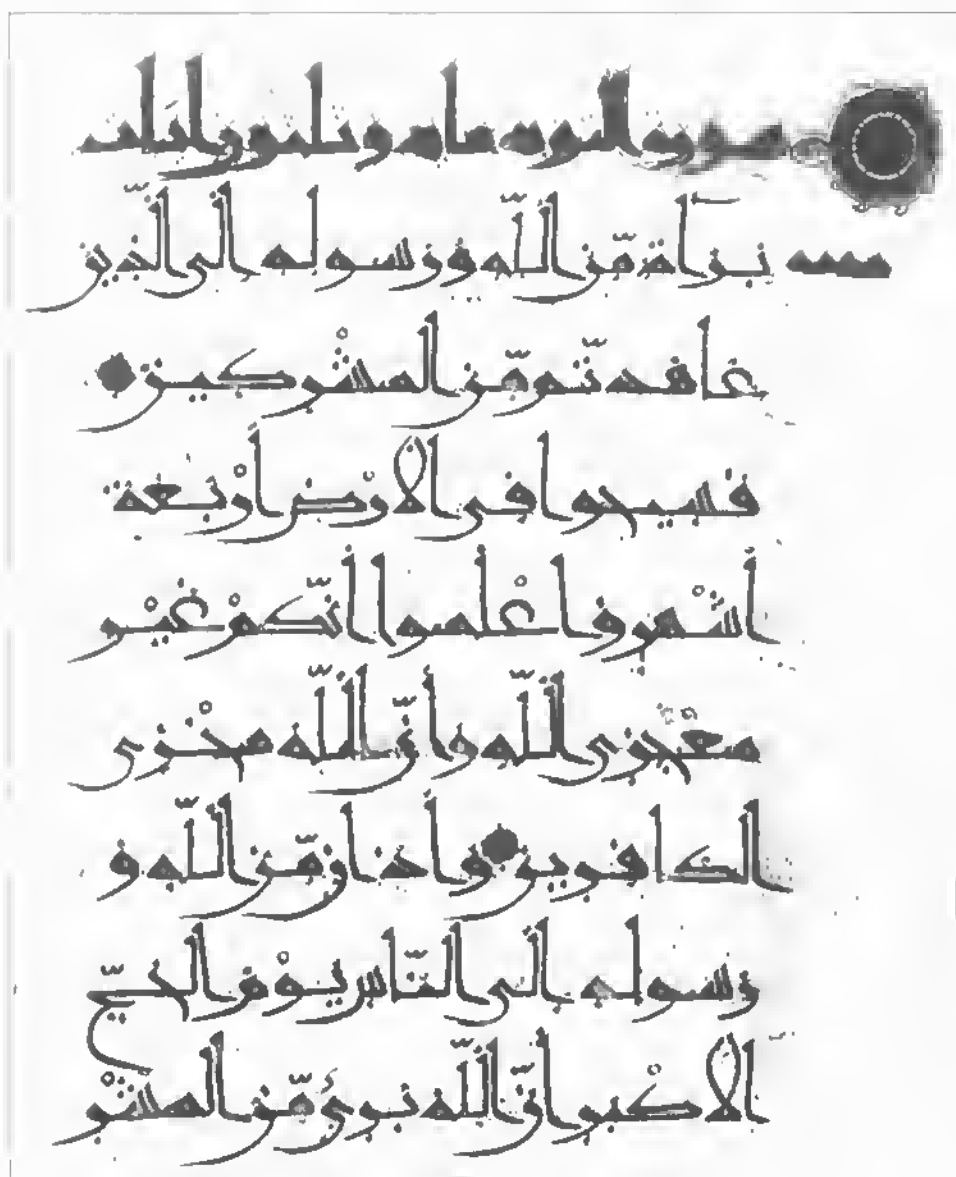 سورة التوبة مائة وثلثون
براءة مّن اللّه ورسوله إلى الّذين
عاهدتّم مّن المشْركين
فسيحوا في الأرْض أرْبعة
أشْهر واعْلموا أنّكمْ غيْر
معْجزي اللّه وأنّ اللّه مخْزي
الكافرين وأذان مّن اللّه و
رسوله إلى النّاس يوْم الحجّ
الأكْبر أنّ اللّه بريء مّن المشْر